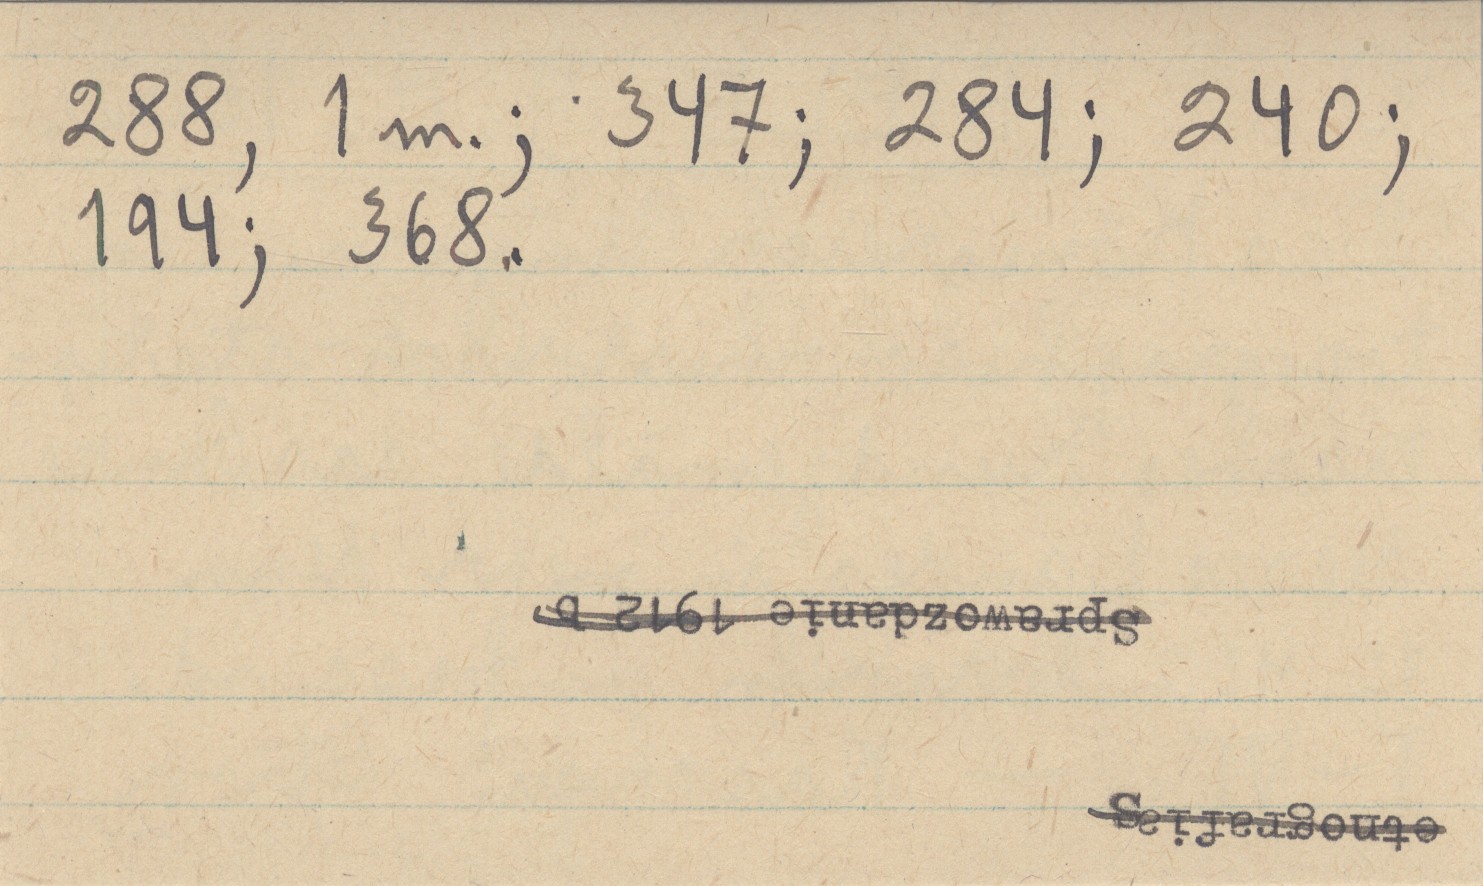 288, 1 m.; 347; 284; 240;
194; 368.
Sprawozdanie 1912 b
etnografia